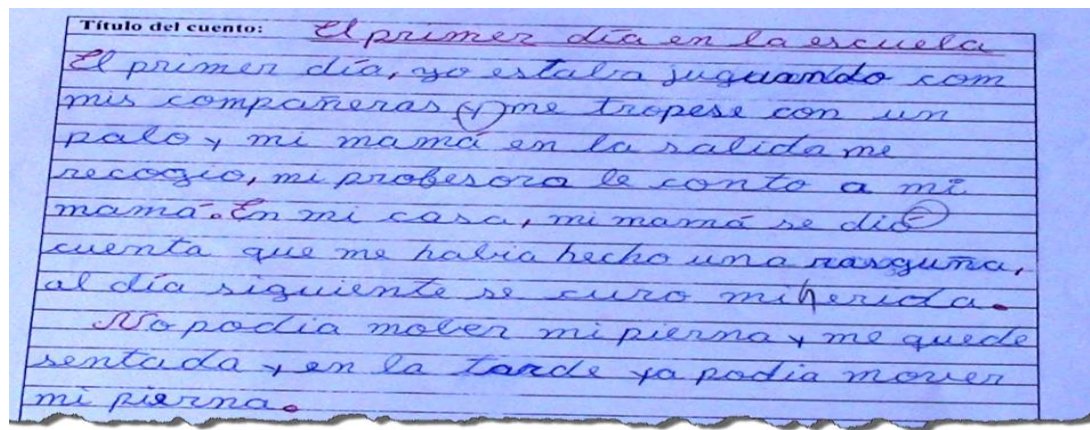 Título del cuento: El primer día en la escuela
El primer día, yo estaba juguando com
mis compañeras y me tropese con un
palo y mi mamá en la salida me
recogio, mi probesora le conto a mi
mamá. En mi casa, mi mamá se dió
cuenta que me habia hecho una rasguña,
al día siguiente se curo mi herida.
No podia mober mi pierna y me quede
sentada y en la tarde ya podia mover
mi pierna.